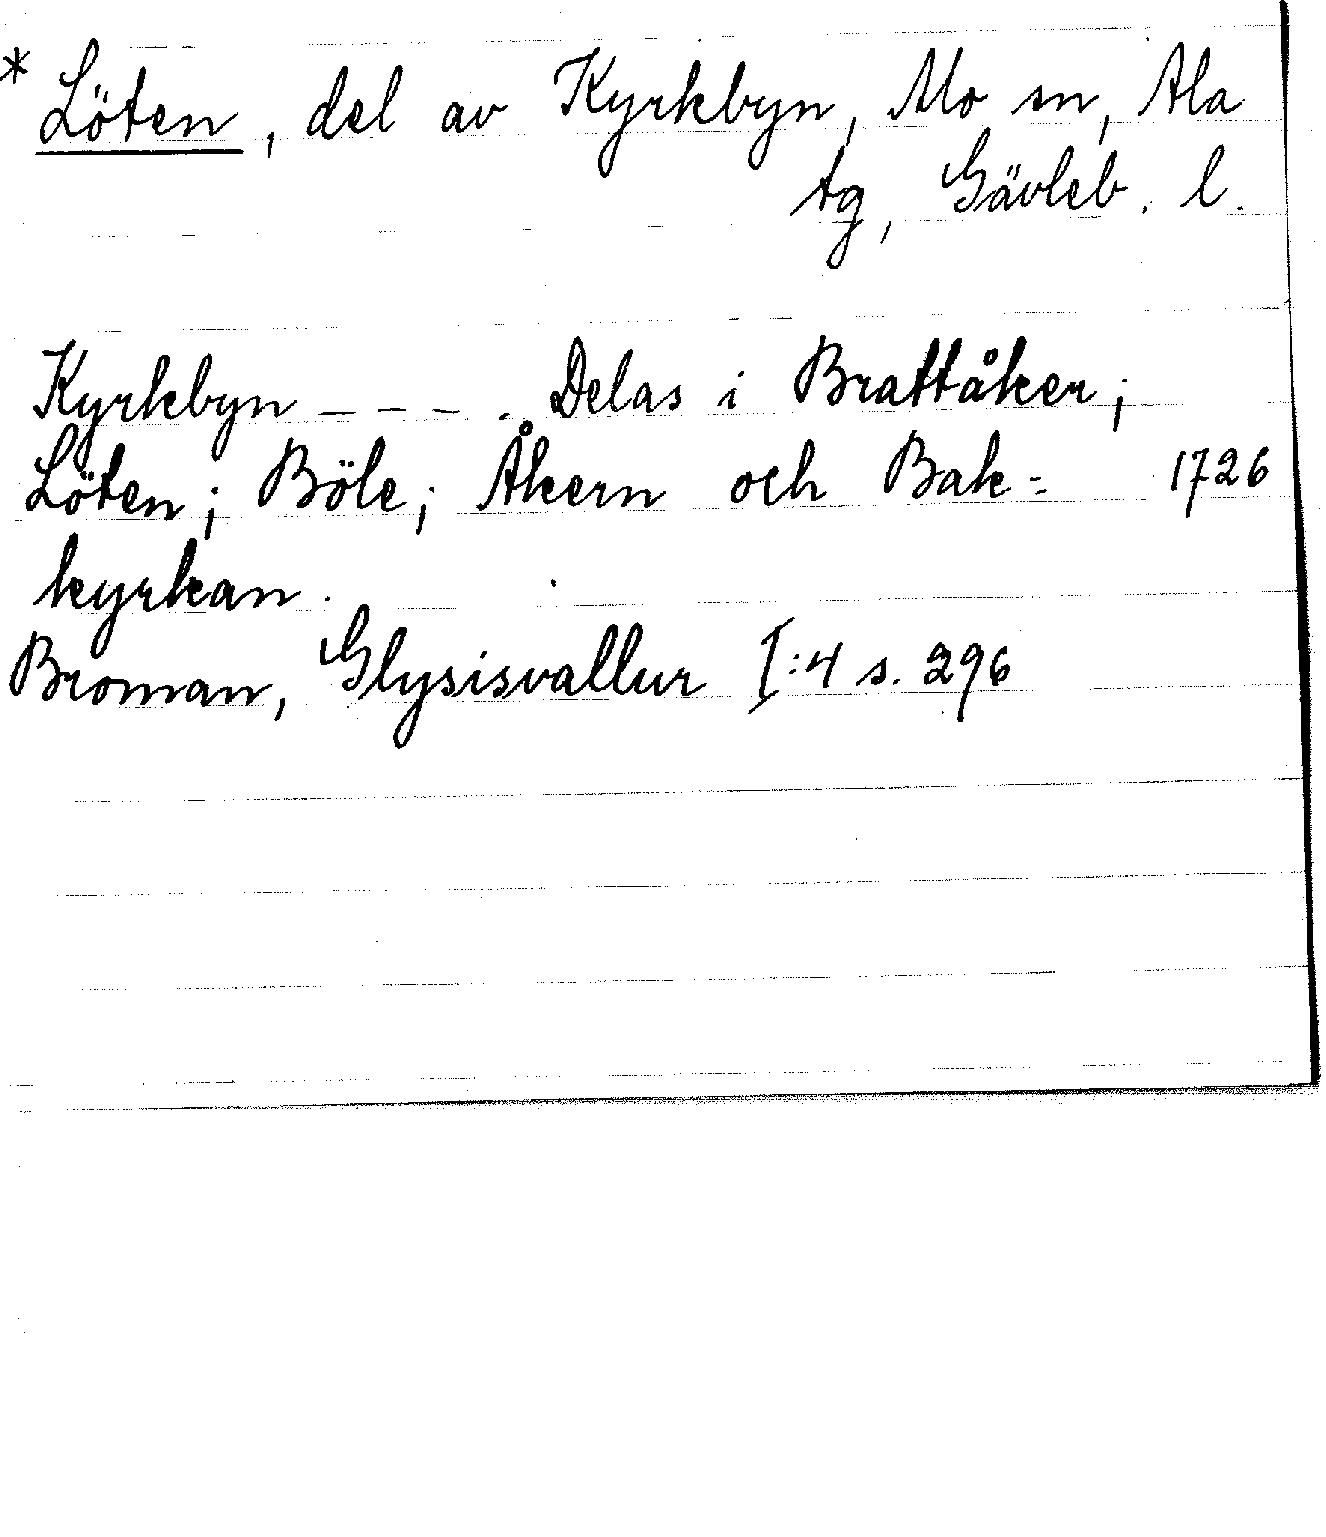 * Löten, del av Kyrkbyn, Mo sn, Ala
tg, Gävleb. l.
Kyrkbyn - - - . Delas i Brattåker;
Löten; Böle; Åkern och Bak= 1726
kyrkan.
Broman, Glysisvallur I:4 s. 296